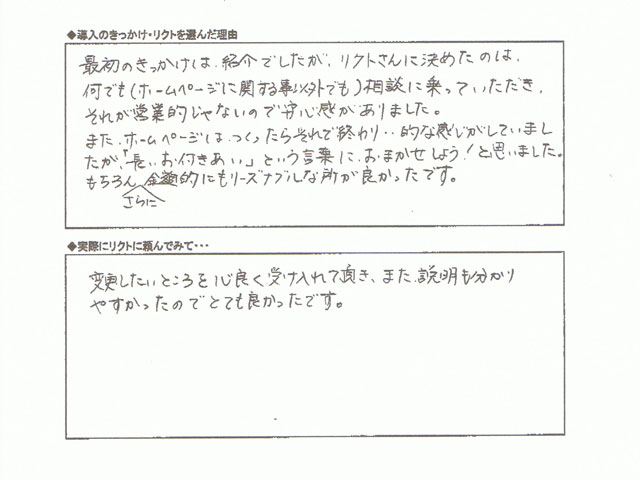 ◆導入のきっかけ・リクトを選んだ理由
最初のきっかけは、紹介でしたが、リクトさんに決めたのは、
何でも(ホームページに関する事以外でも)相談に乗っていただき、
それが営業的じゃないので安心感がありました。
また、ホームページは、つくったらそれで終わり‥的な感じがしていまし
たが、「長いお付きあい」という言葉に、おまかせしよう!と思いました。
もちろん、金額的にもリーズナブルな所が良かったです。
さらに
◆実際にリクトに頼んでみて・・・
変更したいところを心良く受け入れて頂き、また、説明も分かり
やすかったのでとても良かったです。